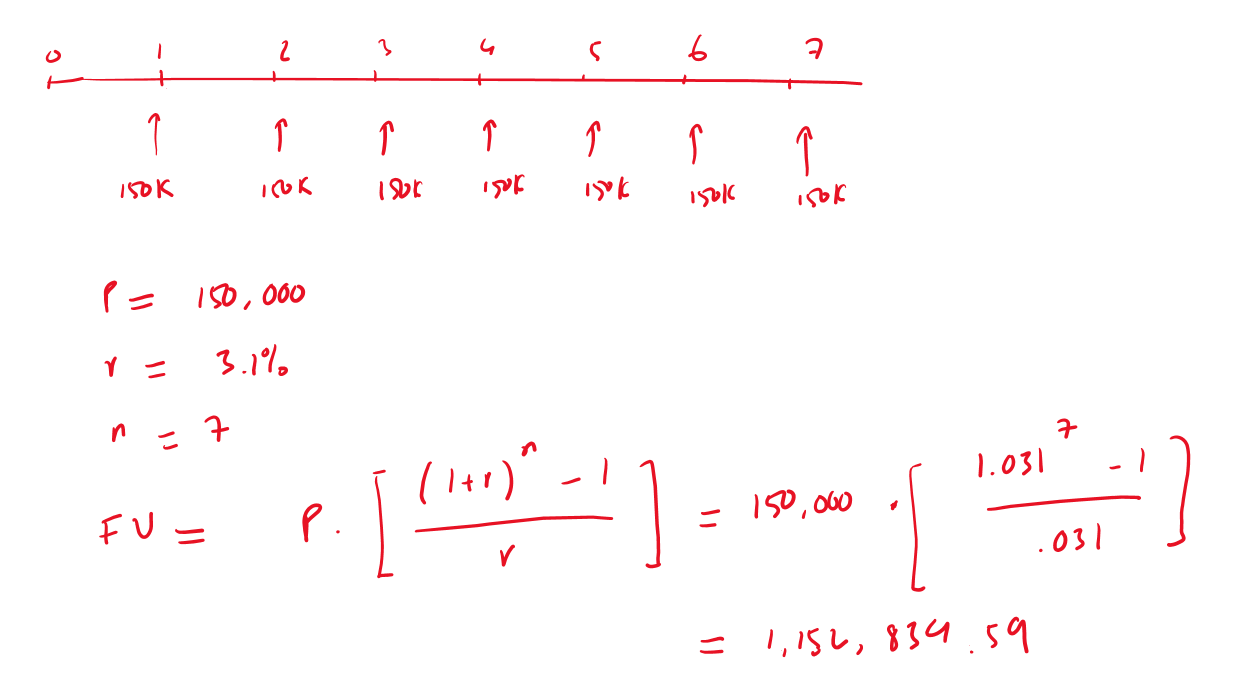 0 1 2 3 4 5 6 7
↑ ↑ ↑ ↑ ↑ ↑ ↑
150K 150K 150K 150K 150K 150K 150K
P = 150,000
r = 3.1%
n = 7
FV = P. [ ((1+r)^n - 1) / r ] = 150,000 . [ (1.031^7 - 1) / .031 ]
= 1,152,834.59